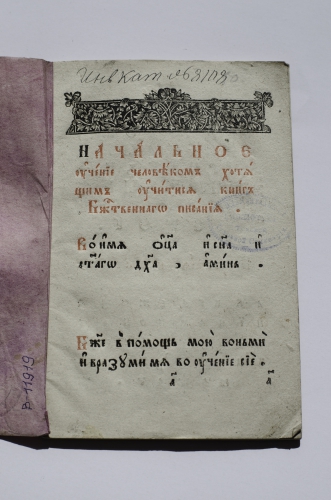 Инв Кат № 63103
НАЧА́ЛЬНОЕ
ᲂу҆че́нїе человѣ́комъ хотѧ́
щымъ ᲂу҆чи́тисѧ кни́гъ
Бж҃е́ственнагѡ писа́нїѧ .
Во и҆́мѧ ѻ҆ц҃а̀ и҆ сн҃а и҆
ст҃а́гѡ дх҃а , а҆ми́нь .
Бж҃е в̾ по́мощь мою̀ вонмѝ
и҆ вразꙋми́ мѧ во ᲂу҆че́нїе сїѐ .
а҃ а҃
В-11919